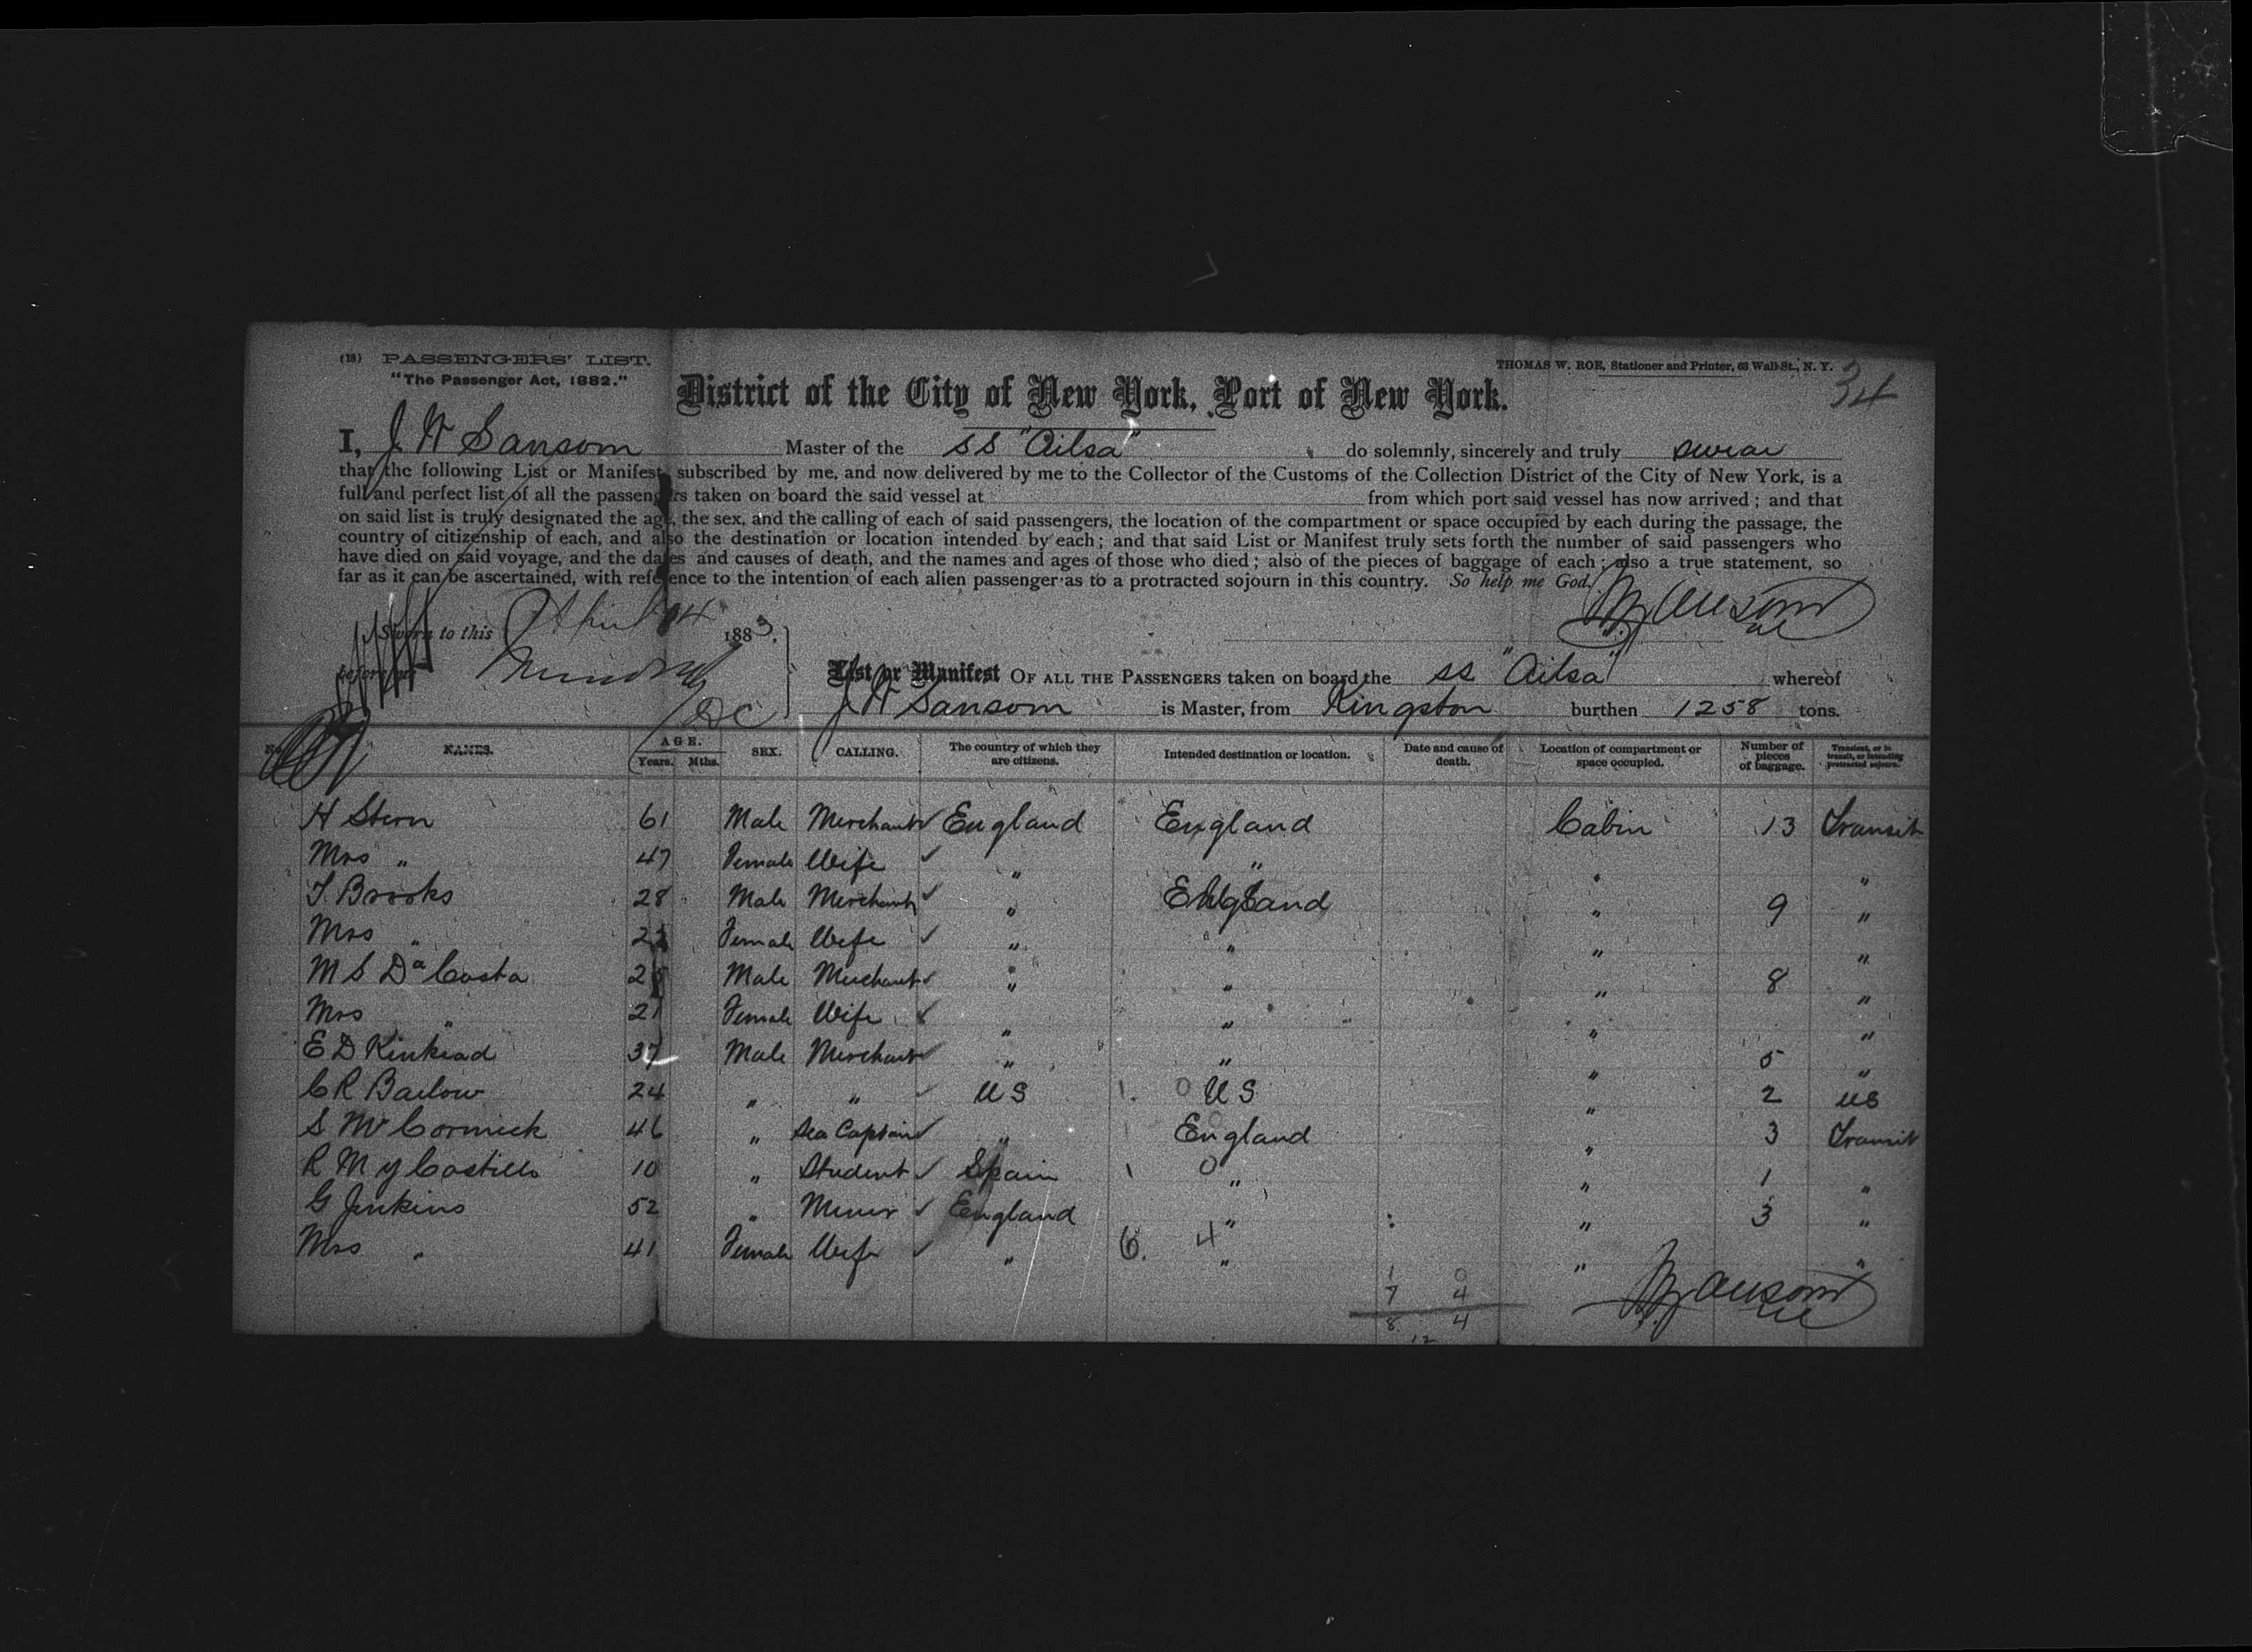 (18) PASSENGERS' LIST.
"The Passenger Act, 1882."
THOMAS W. ROE, Stationer and Printer, 63 Wall-St., N. Y.
34
District of the City of New York, Port of New York.
I, J. W Sansom Master of the SS "Ailsa" do solemnly, sincerely and truly swear
that the following List or Manifest, subscribed by me, and now delivered by me to the Collector of the Customs of the Collection District of the City of New York, is a
full and perfect list of all the passengers taken on board the said vessel at from which port said vessel has now arrived; and that
on said list is truly designated the age, the sex, and the calling of each of said passengers, the location of the compartment or space occupied by each during the passage, the
country of citizenship of each, and also the destination or location intended by each; and that said List or Manifest truly sets forth the number of said passengers who
have died on said voyage, and the dates and causes of death, and the names and ages of those who died; also of the pieces of baggage of each; also a true statement, so
far as it can be ascertained, with reference to the intention of each alien passenger as to a protracted sojourn in this country. So help me God.
Sworn to this April 14 1883.
before me
DC
List or Manifest OF ALL THE PASSENGERS taken on board the SS "Ailsa" whereof
J W Sansom is Master, from Kingston burthen 1258 tons.
No. NAMES. AGE. Years. Mths. SEX. CALLING. The country of which they are citizens. Intended destination or location. Date and cause of death. Location of compartment or space occupied. Number of pieces of baggage. Transient, or in transit, or intending protracted sojourn.
H Stern 61 Male Merchant England England Cabin 13 Transit
Mrs " 47 Female Wife " " " "
T. Brooks 28 Male Merchant " England " 9 "
Mrs " Female Wife " " " "
M S Da Costa Male Merchant " " " 8 "
Mrs " 21 Female Wife " " " "
E D Kinkead 37 Male Merchant " " " 5 "
C R Barlow 24 " " US 1. 0 US " 2 US
S McCormick 46 " Sea Captain " England " 3 Transit
R M y Castillo 10 " Student Spain 1 0 " " 1 "
G Jenkins 52 " Miner England " " 3 "
Mrs " 41 Female Wife " 6. 4 " " "
1 0
7 4
8 4
12